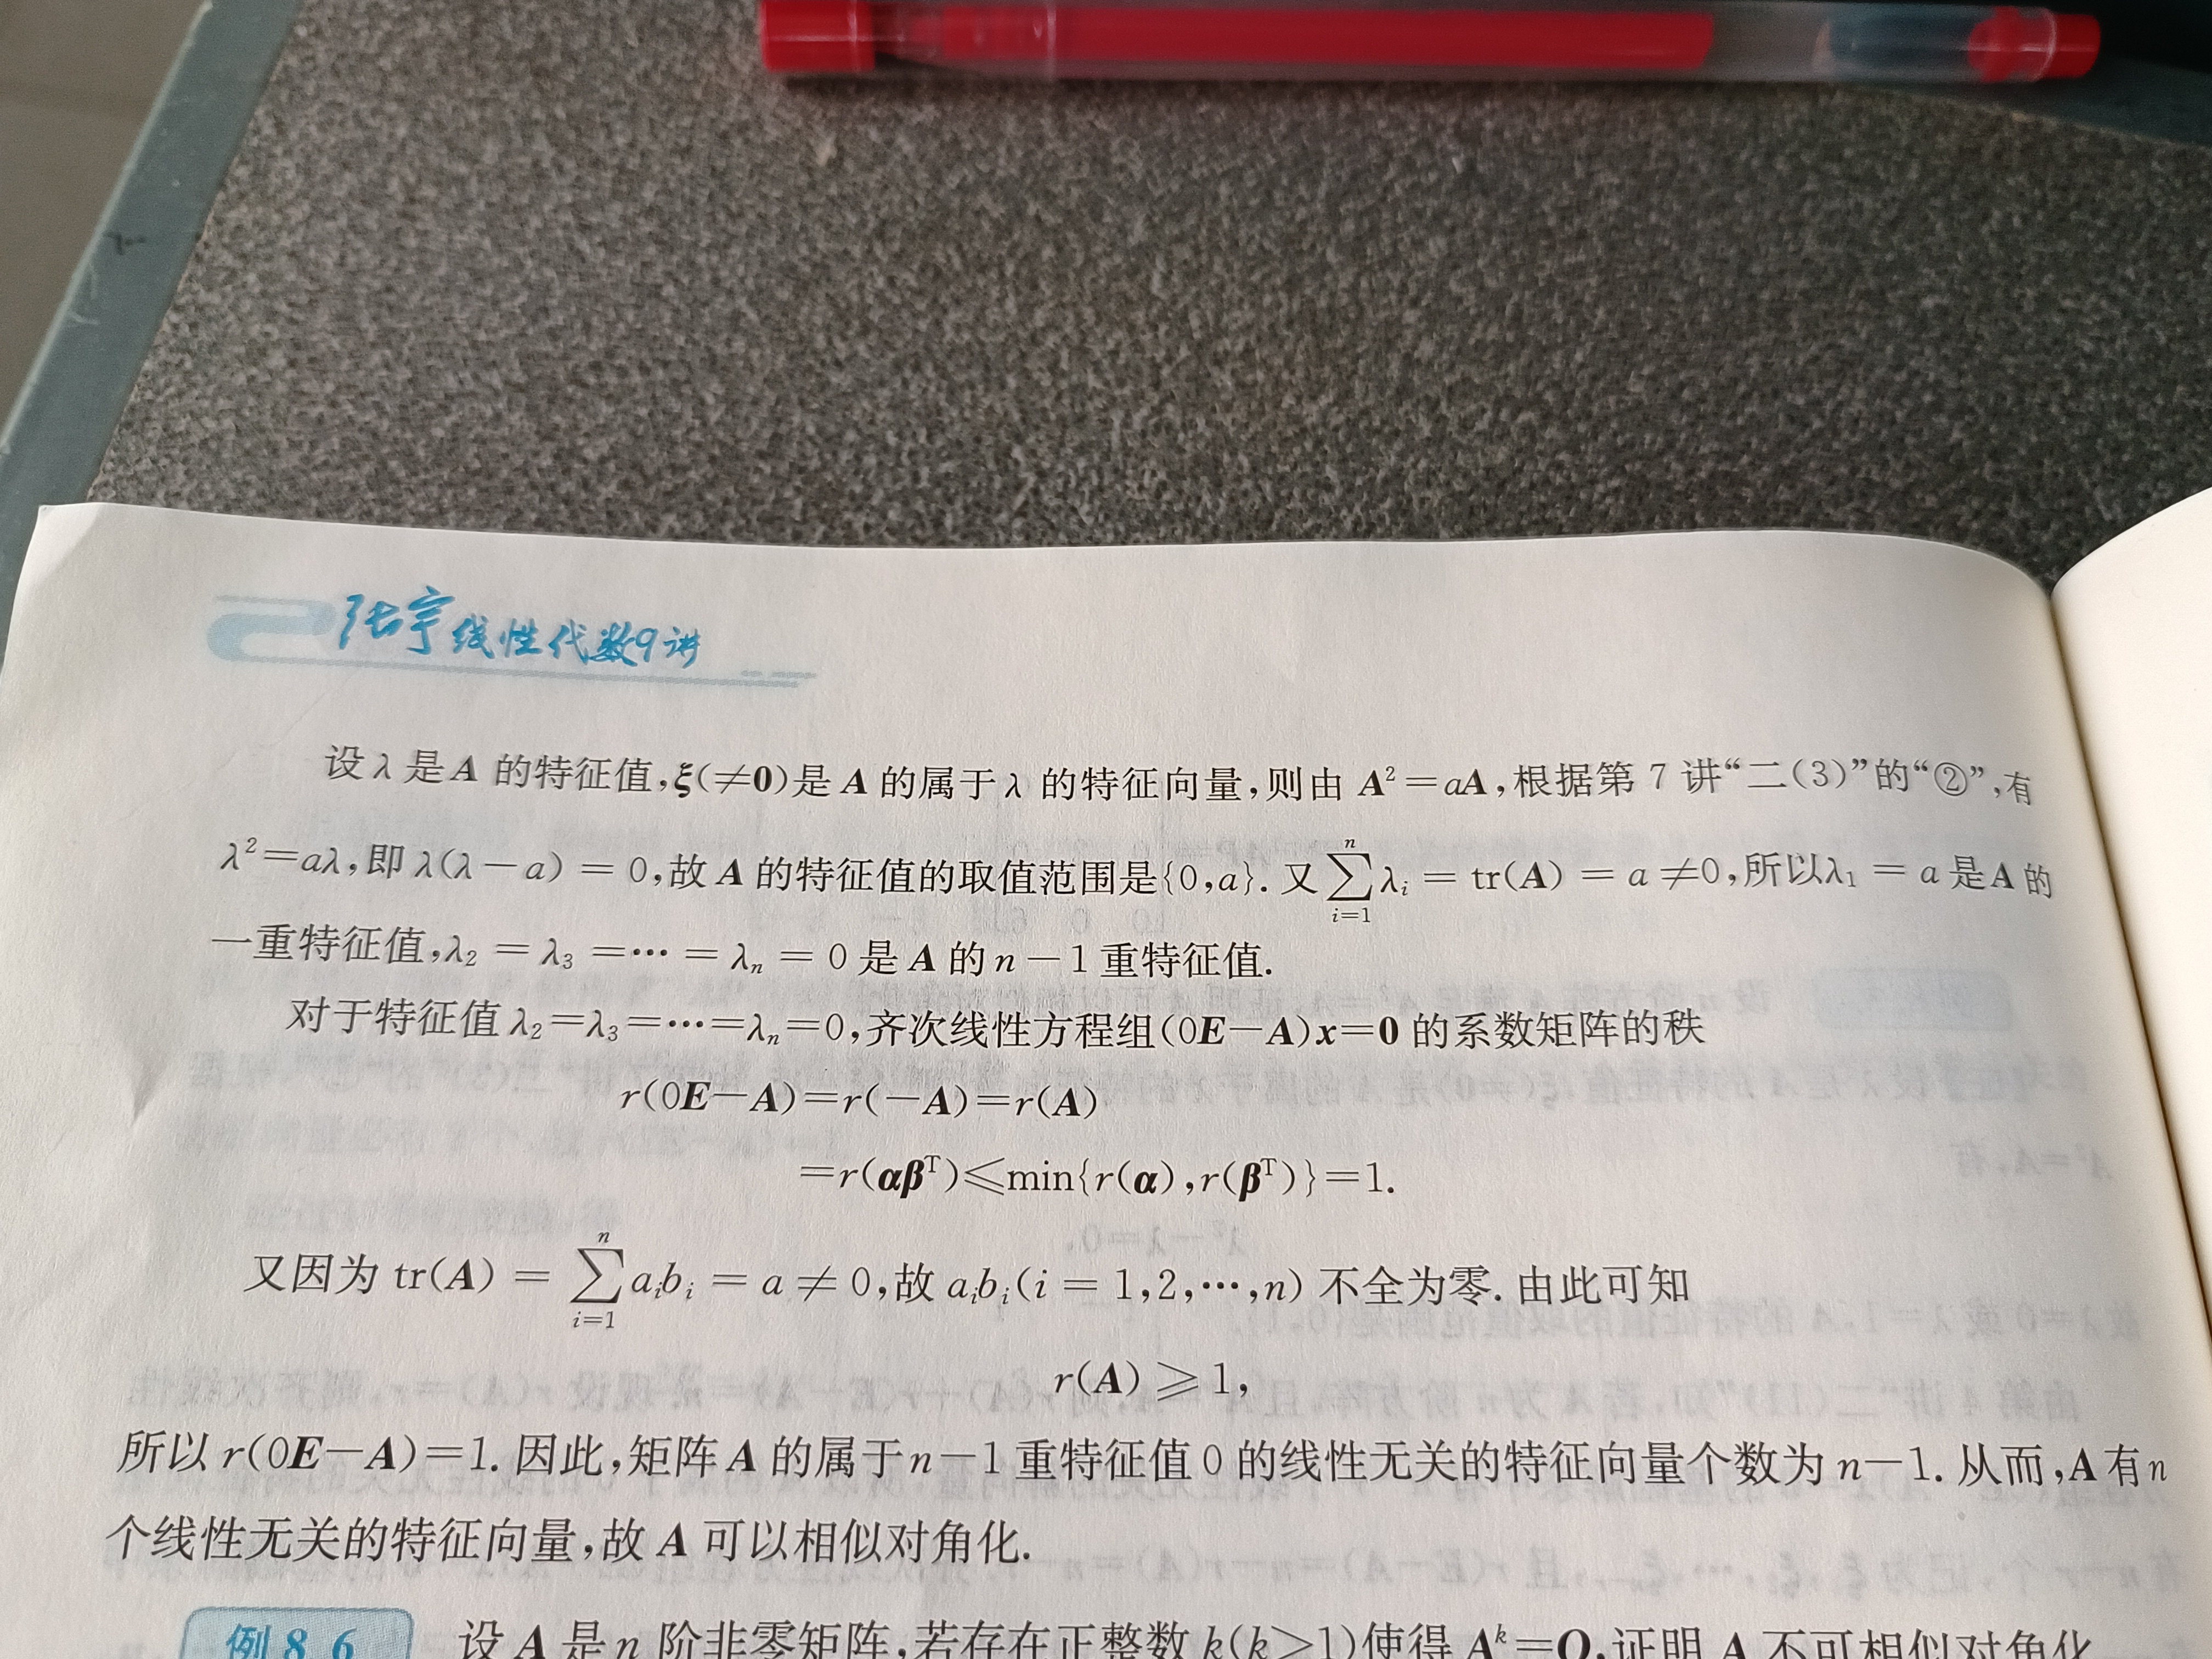 张宇线性代数9讲
设λ是A的特征值,ξ(≠0)是A的属于λ的特征向量,则由A²=aA,根据第7讲“二(3)”的“②”,有
λ²=aλ,即λ(λ-a)=0,故A的特征值的取值范围是{0,a}.又∑_{i=1}^{n}λ_i=tr(A)=a≠0,所以λ₁=a是A的
一重特征值,λ₂=λ₃=⋯=λ_n=0是A的n-1重特征值.
对于特征值λ₂=λ₃=⋯=λ_n=0,齐次线性方程组(0E-A)x=0的系数矩阵的秩
r(0E-A)=r(-A)=r(A)
=r(αβ^T)≤min{r(α),r(β^T)}=1.
又因为tr(A)=∑_{i=1}^{n}a_ib_i=a≠0,故a_ib_i(i=1,2,⋯,n)不全为零.由此可知
r(A)≥1,
所以r(0E-A)=1.因此,矩阵A的属于n-1重特征值0的线性无关的特征向量个数为n-1.从而,A有n
个线性无关的特征向量,故A可以相似对角化.
例8.6 设A是n阶非零矩阵,若存在正整数k(k>1)使得A^k=O,证明A不可相似对角化